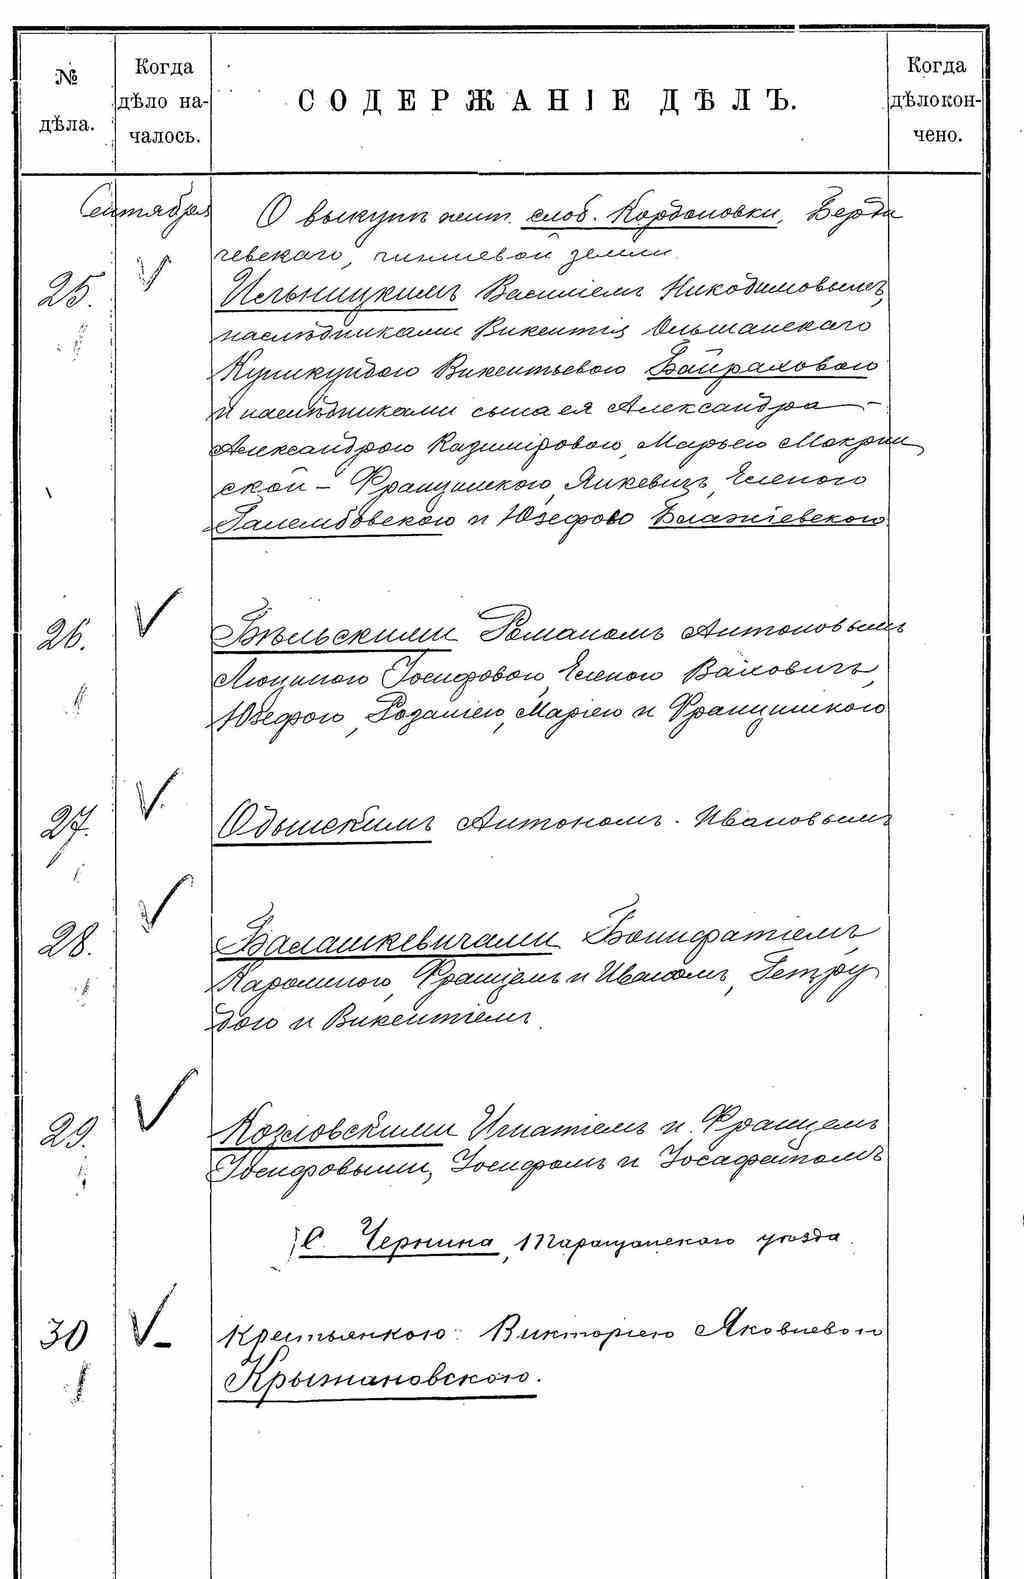 № дѣла.
Когда дѣло началось.
СОДЕРЖАНІЕ ДѢЛЪ.
Когда дѣло кончено.
Сентября
О выкупѣ жит. слоб. Кордоновки, Берди
чевскаго, чиншевой земли.
25. Ильницкимъ Василіемъ Никодимовымъ,
наслѣдниками Викентія Ольшанскаго
Кунигундою Викентьевою Байраховою
и наслѣдниками сына ея Александра –
Александрою Казиміровою, Марьею Мокрин
ской – Францишкою Янкевичъ, Еленою
Галембовскою и Юзефою Блажіевскою
26. Бѣльскими Романомъ Антоновымъ
Люциною Іосифовою, Еленою Вайховичъ,
Юзефою, Розаліею, Маріею и Францишкою
27. Одынскимъ Антономъ Ивановымъ
28. Балашкевичами Бонифатіемъ,
Каролиною, Францемъ и Иваномъ, Гетру
дою и Викентіемъ.
29. Козловскими Игнатіемъ и Францемъ
Іосифовыми, Іосифомъ и Іосафатомъ
С. Чернина, Таращанскаго уѣзда.
30 Крестьянкою Викторіею Яковлевою
Крыжановскою.